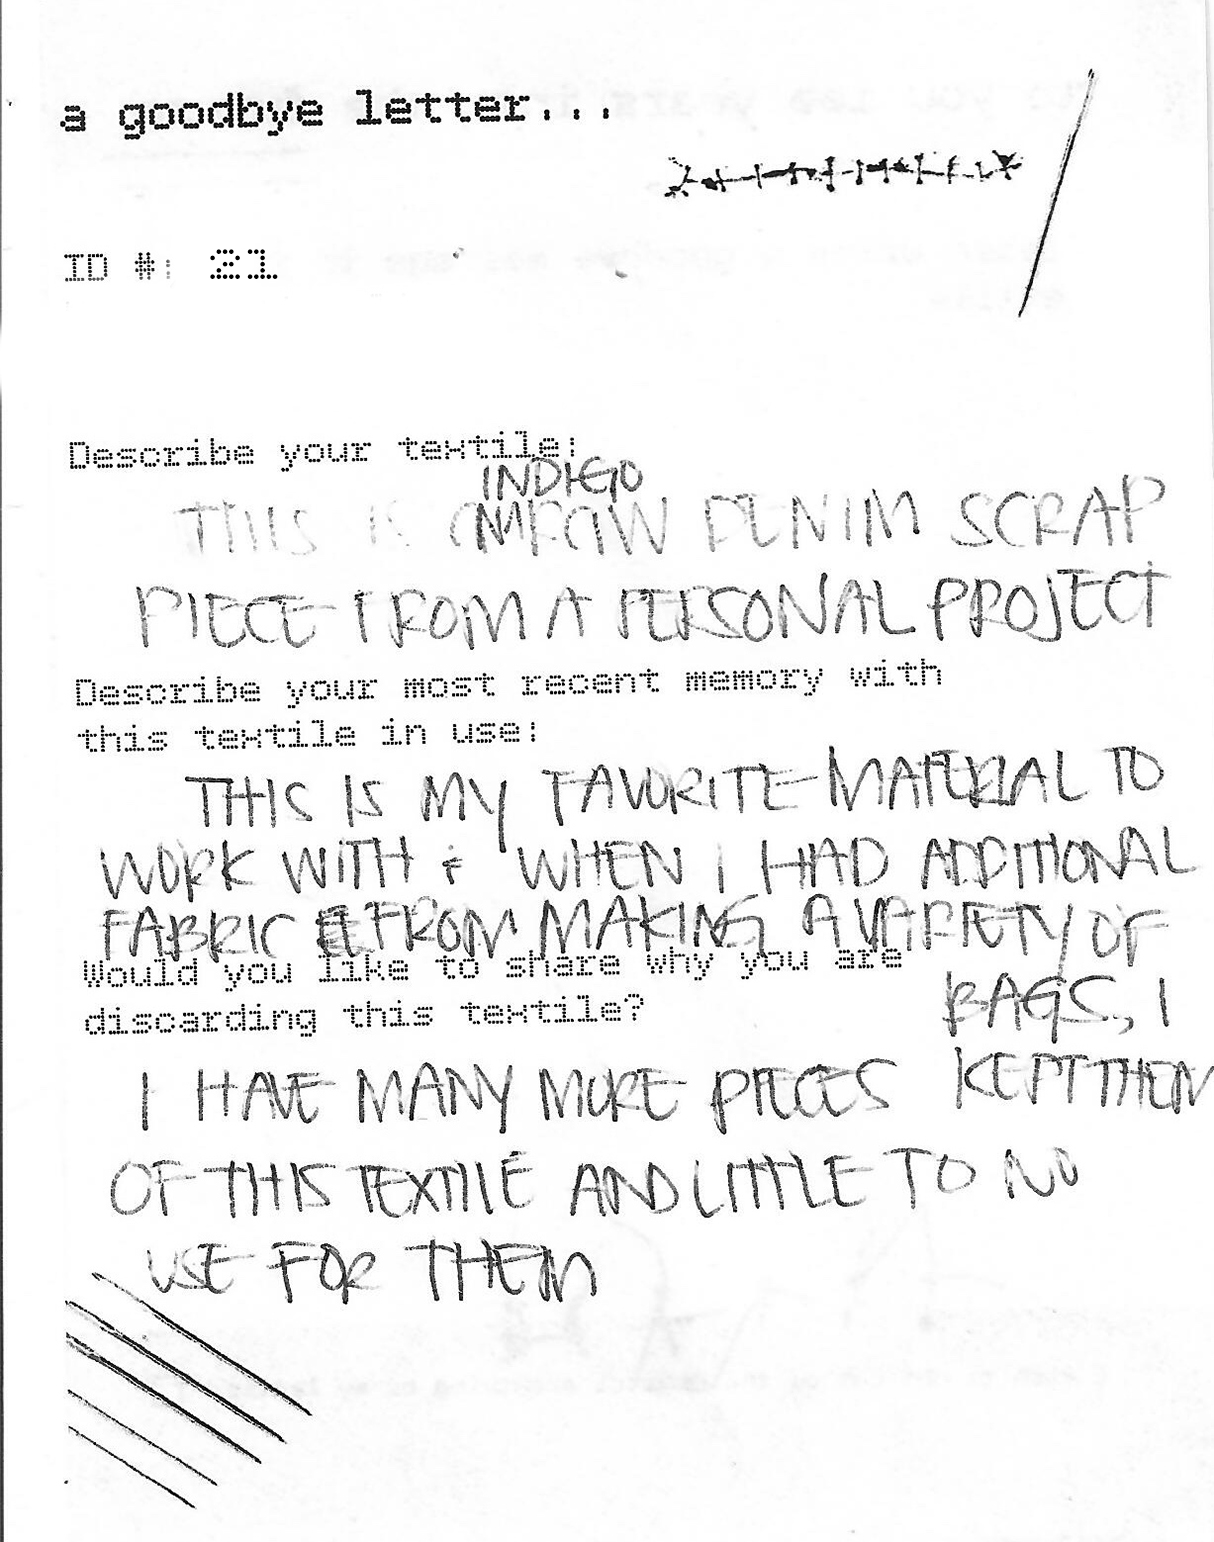 a goodbye letter...
ID #: 21
Describe your textile:
INDIGO
THIS IS RAW DENIM SCRAP
PIECE FROM A PERSONAL PROJECT
Describe your most recent memory with
this textile in use:
THIS IS MY FAVORITE MATERIAL TO
WORK WITH & WHEN I HAD ADDITIONAL
FABRIC FROM MAKING A VARIETY OF
BAGS, I
KEPT THEM
Would you like to share why you are
discarding this textile?
I HAVE MANY MORE PIECES
OF THIS TEXTILE AND LITTLE TO NO
USE FOR THEM